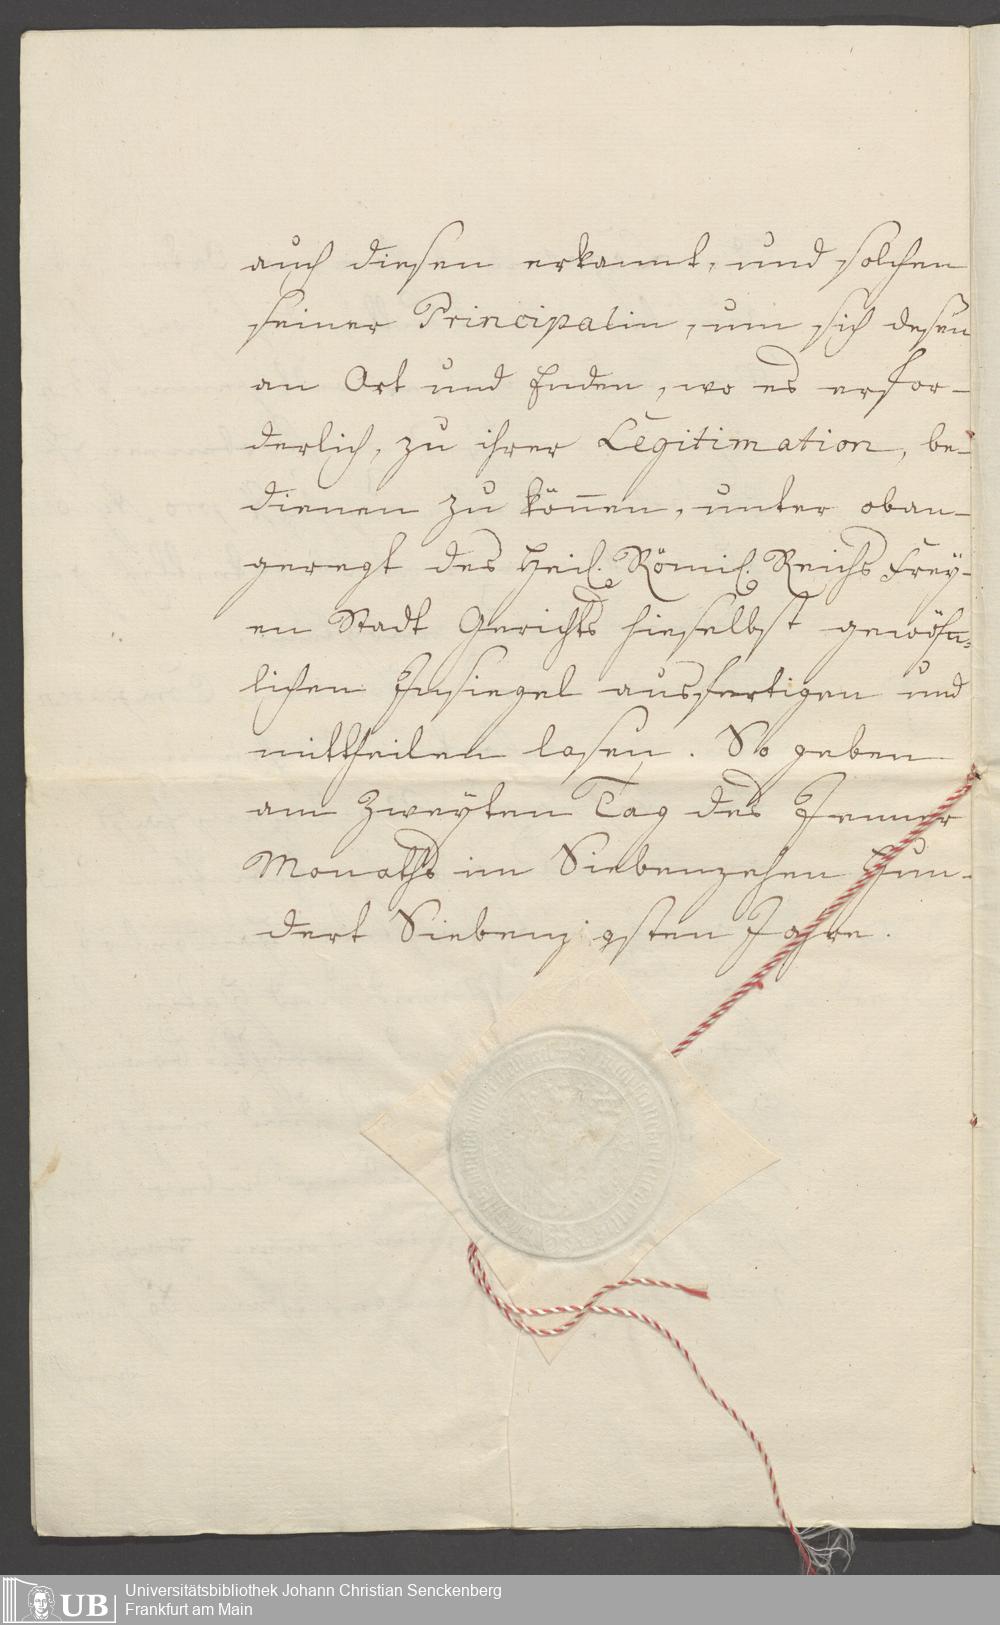 auch diesen erkannt, und solchen
seiner Principalin, um sich deßen
an Ort und Enden, wo es erfor-
derlich, zu ihrer Legitimation, be-
dienen zu köñen, unter oban-
geregt des Heil. Römil. Reichs Frey-
en Stadt Gerichts hieselbst gewöhn-
lichen Insiegel ausfertigen und
mittheilen laßen. So geben
am Zweyten Tag des Jenner
Monaths im Siebenzehen Hun-
dert Siebenzigsten Jahre.
UB
Universitätsbibliothek Johann Christian Senckenberg
Frankfurt am Main